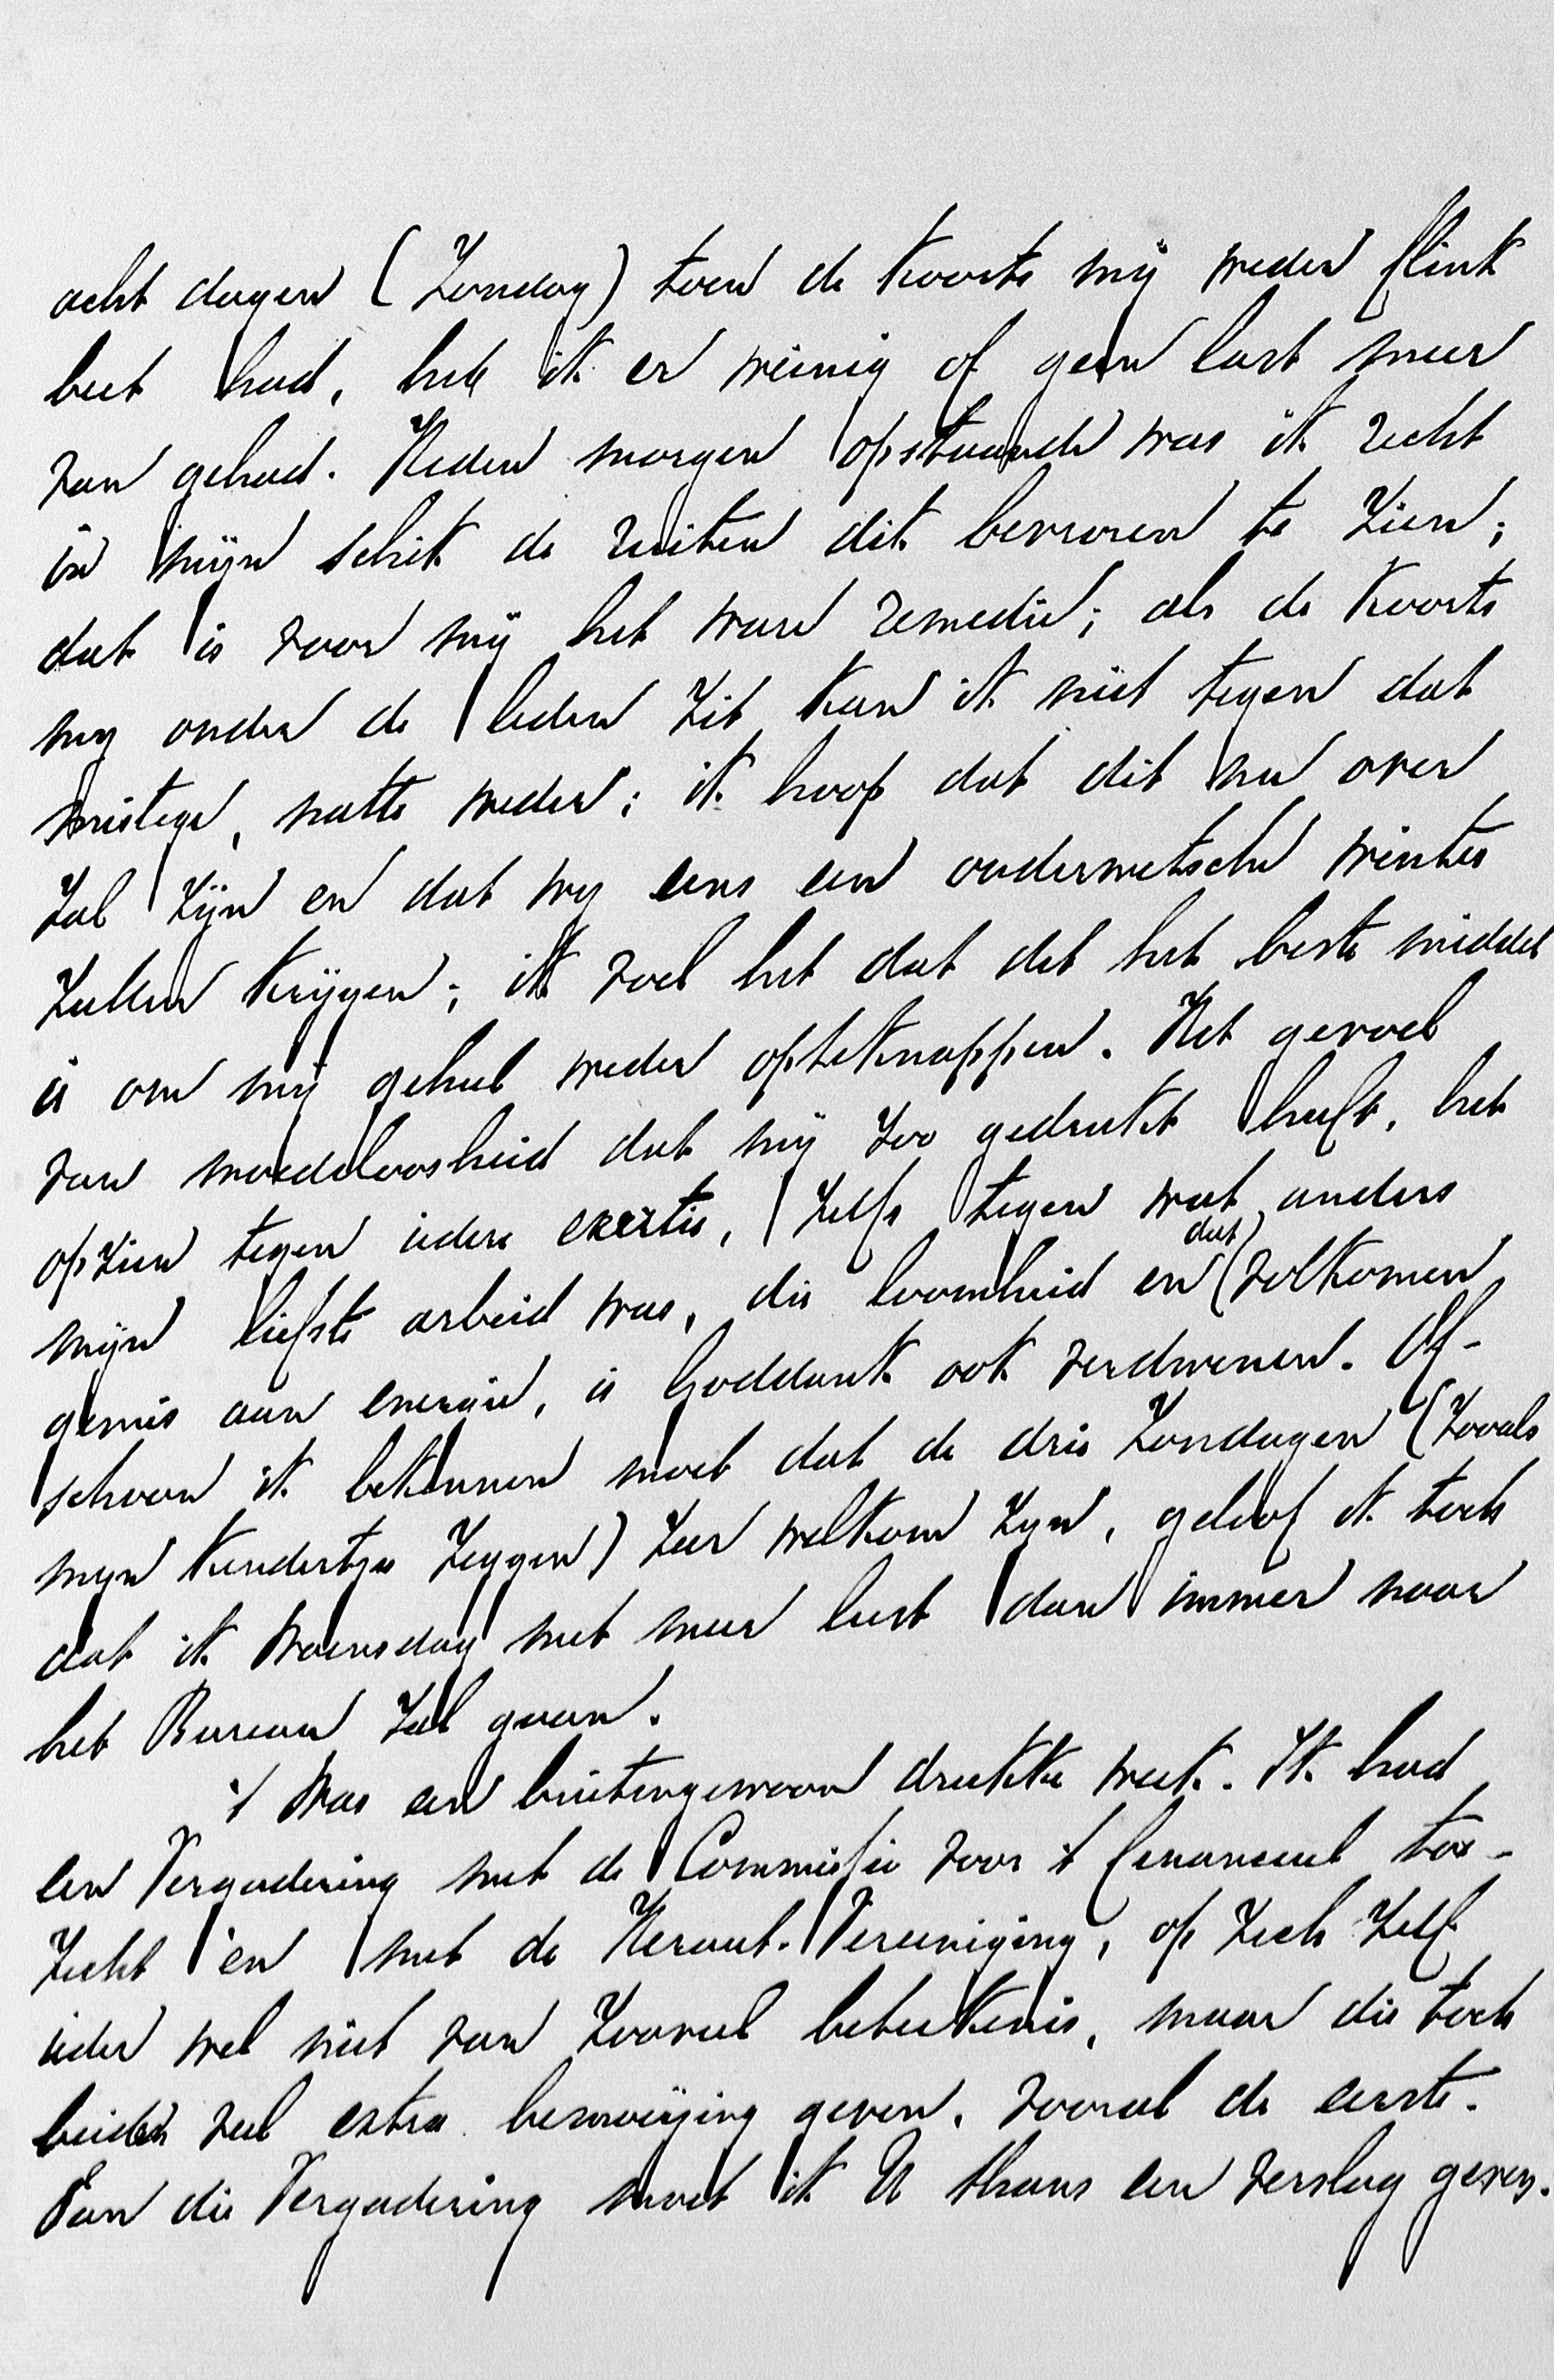 acht dagen (Zondag) toen de koorts mij weder flink
beet had, heb ik er weinig of geen last meer
van gehad. Heden morgen opstaande was ik recht
in mijn schik de ruiten dik bevroren te zien;
dat is voor mij het ware remedie; als de koorts
my onder de leden zit kan ik niet tegen dat
mistige, natte weder; ik hoop dat dit nu over
zal zijn en dat wy eens een ouderwetsche winter
zullen krijgen; ik voel het dat dit het beste middel
is om mij geheel weder opteknappen. Het gevoel
van moedeloosheid dat mij zoo gedrukt heeft, het
opzien tegen iedere exertie, zelfs tegen wat anders
mijn liefste arbeid was, die loomheid en (dat) volkomen
gemis aan energie, is Goddank ook verdwenen. Of-
schoon ik bekennen moet dat de drie Zondagen (zooals
myn kindertjes zeggen) zeer welkom zyn, geloof ik toch
dat ik Woensdag met meer lust dan immer naar
het Bureau zal gaan.
't Was een buitengewoon drukke week. Ik had
een Vergadering met de Commissie voor 't financieel toe-
zicht en met de Heraut-Vereeniging, op zich zelf
ieder wel niet van zooveel beteekenis, maar die toch
beiden veel extra bemoeijing geven, vooral de eerste.
Van die Vergadering moet ik U thans een verslag geven.